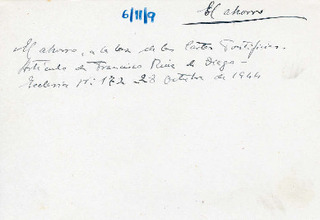 6/11/9
El ahorro
El ahorro, a la luz de las Cartas Pontificias.
Artículo de Francisco Ruiz de Diego -
Ecclesia Nº 172 28 Octubre de 1944